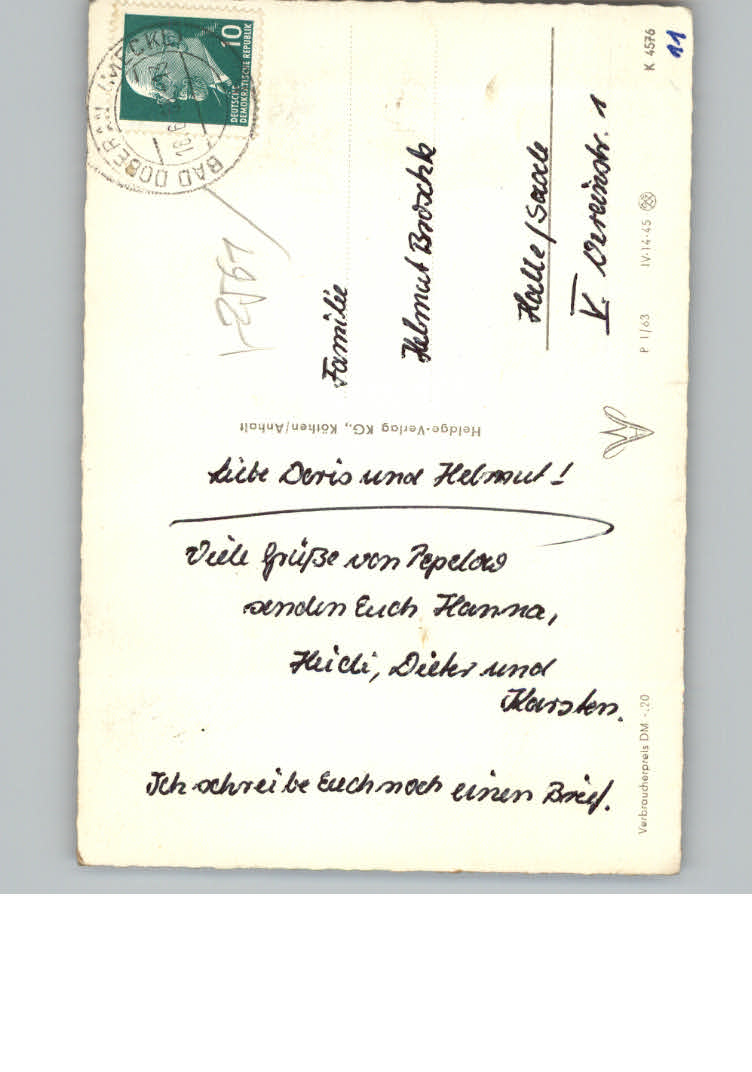 Liebe Doris und Helmut!
Viele Grüße von Pepelow
senden Euch Hanna,
Heidi, Dieter und
Karsten.
Ich schreibe Euch noch einen Brief.
Heldge-Verlag KG., Köthen/Anhalt
10
DEUTSCHE
DEMOKRATISCHE REPUBLIK
BAD DOBERAN
Familie
Helmut Broschk
Halle/Saale
V. Vereinstr. 1
P 1/63 IV-14-45 K 4576
11
Verbraucherpreis DM -.20